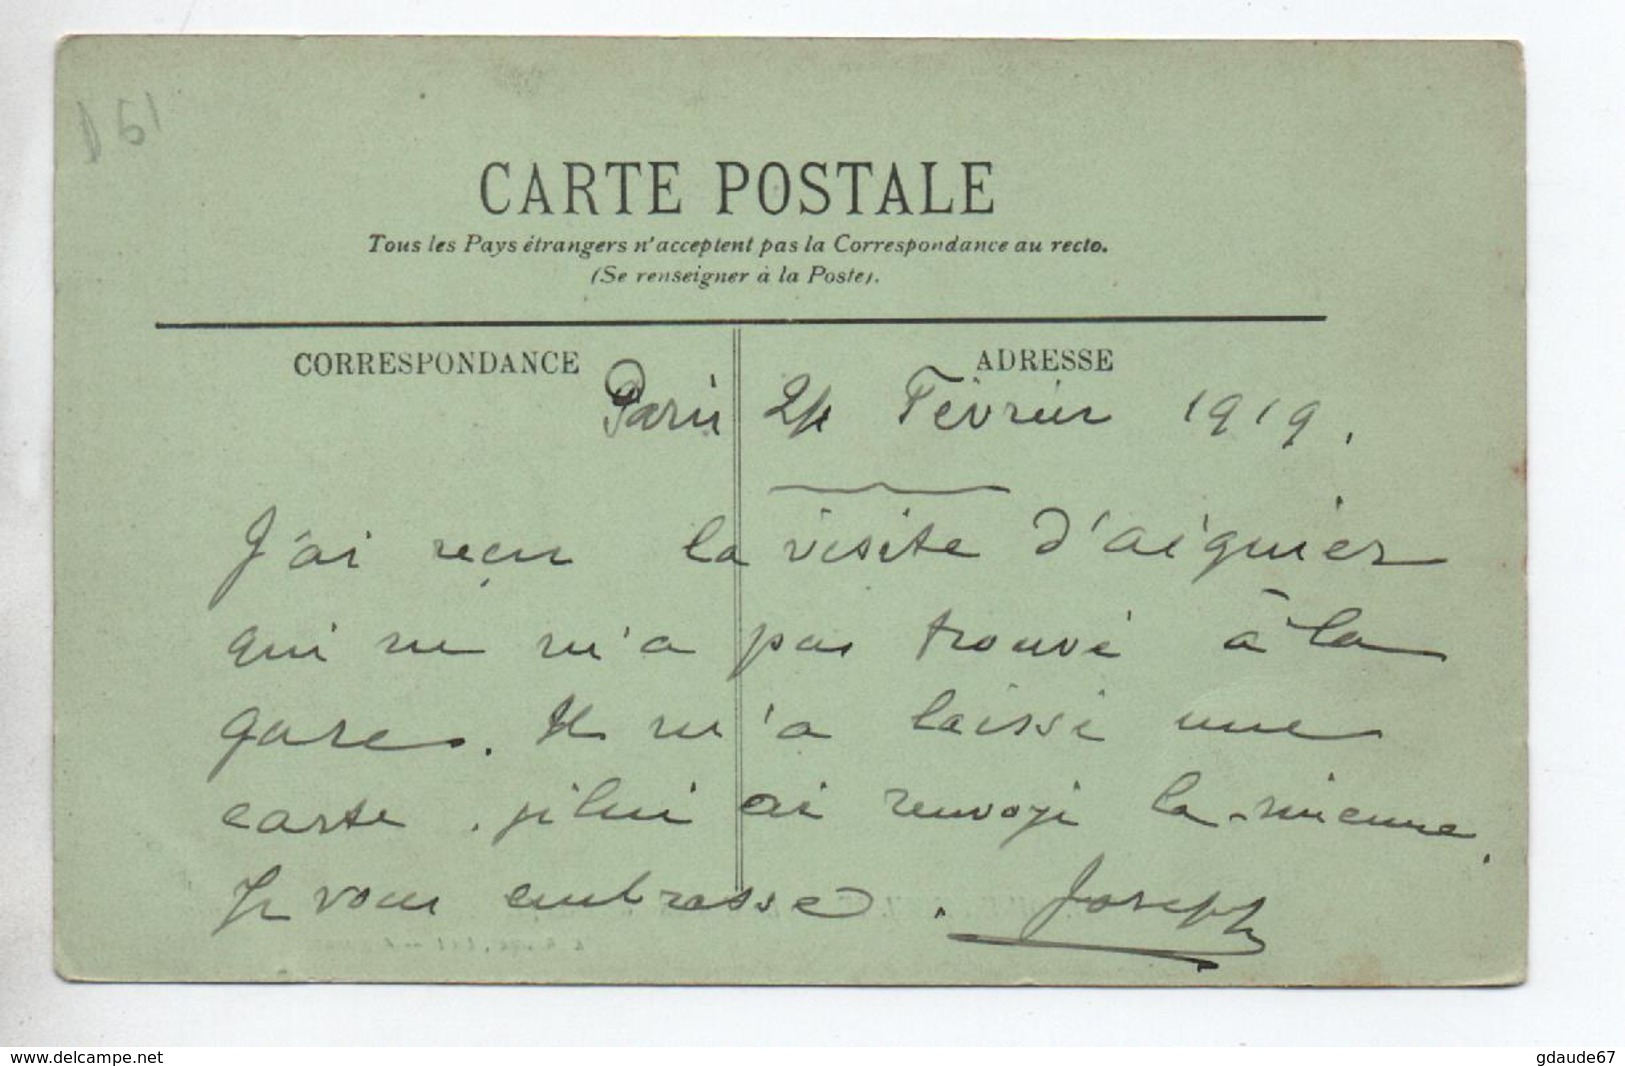 D 61
CARTE POSTALE
Tous les Pays étrangers n'acceptent pas la Correspondance au recto.
(Se renseigner à la Poste).
CORRESPONDANCE
ADRESSE
Paris 24 Février 1919.
J'ai reçu la visite d'aiguier
qui ne m'a pas trouvé à la
gare. Il m'a laissé une
carte. je lui ai renvoyé la mienne.
Je vous embrasse. Joseph
www.delcampe.net
gdaude67